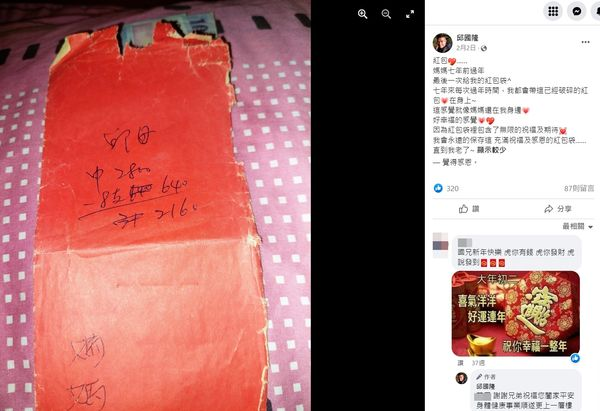 邱母
中 2800
640
2160
媽
媽
邱國隆
2月2日
紅包💖......
媽媽七年前過年
最後一次給我的紅包袋^
七年來每次過年時間、我都會帶這已經破碎的紅
包💗在身上~
這感覺就像媽媽還在我身邊💗
好幸福的感覺💗💖
因為紅包袋裡包含了無限的祝福及期待💓
我會永遠的保存這 充滿祝福及感恩的紅包袋.....
直到我老了~ 顯示較少
— 覺得感恩。
320
87則留言
讚
分享
最相關
國兄新年快樂 虎你有錢 虎你發財 虎
說發到🧧🧧🧧
大年初二
喜氣洋洋
好運連年
祝你幸福一整年
讚 37週
作者
邱國隆
謝謝兄弟祝福您闔家平安
身體健康事業順遂更上一層樓